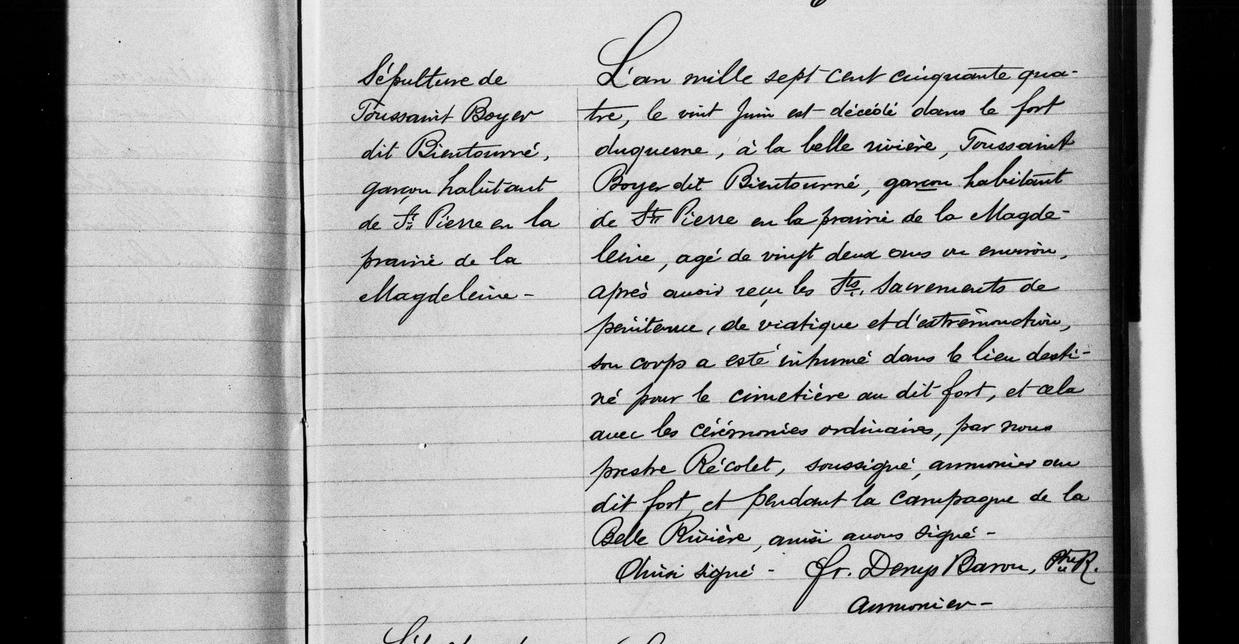 Sépulture de
Toussaint Boyer
dit Bientourné,
garçon habitant
de St. Pierre en la
prairie de la
Magdeleine -
L'an mille sept cent cinquante qua-
tre, le vint Juin est décédé dans le fort
duquesne, à la belle rivière, Toussaint
Boyer dit Bientourné, garçon habitant
de St Pierre en la prairie de la Magde-
leine, agé de vingt deux ans ou environ,
après avoir reçu les Sts. Sacrements de
pénitence, de viatique et d'estrêmonction,
son corps a esté inhumé dans le lieu desti-
né pour le cimetière au dit fort, et cela
avec les cérémonies ordinaires, par nous
prestre Récolet, soussigné, aumonier au
dit fort, et pendant la campagne de la
Belle Rivière, ainsi avons signé -
Ainsi signé - fr. Denys Baron, Ptre R.
aumonier -